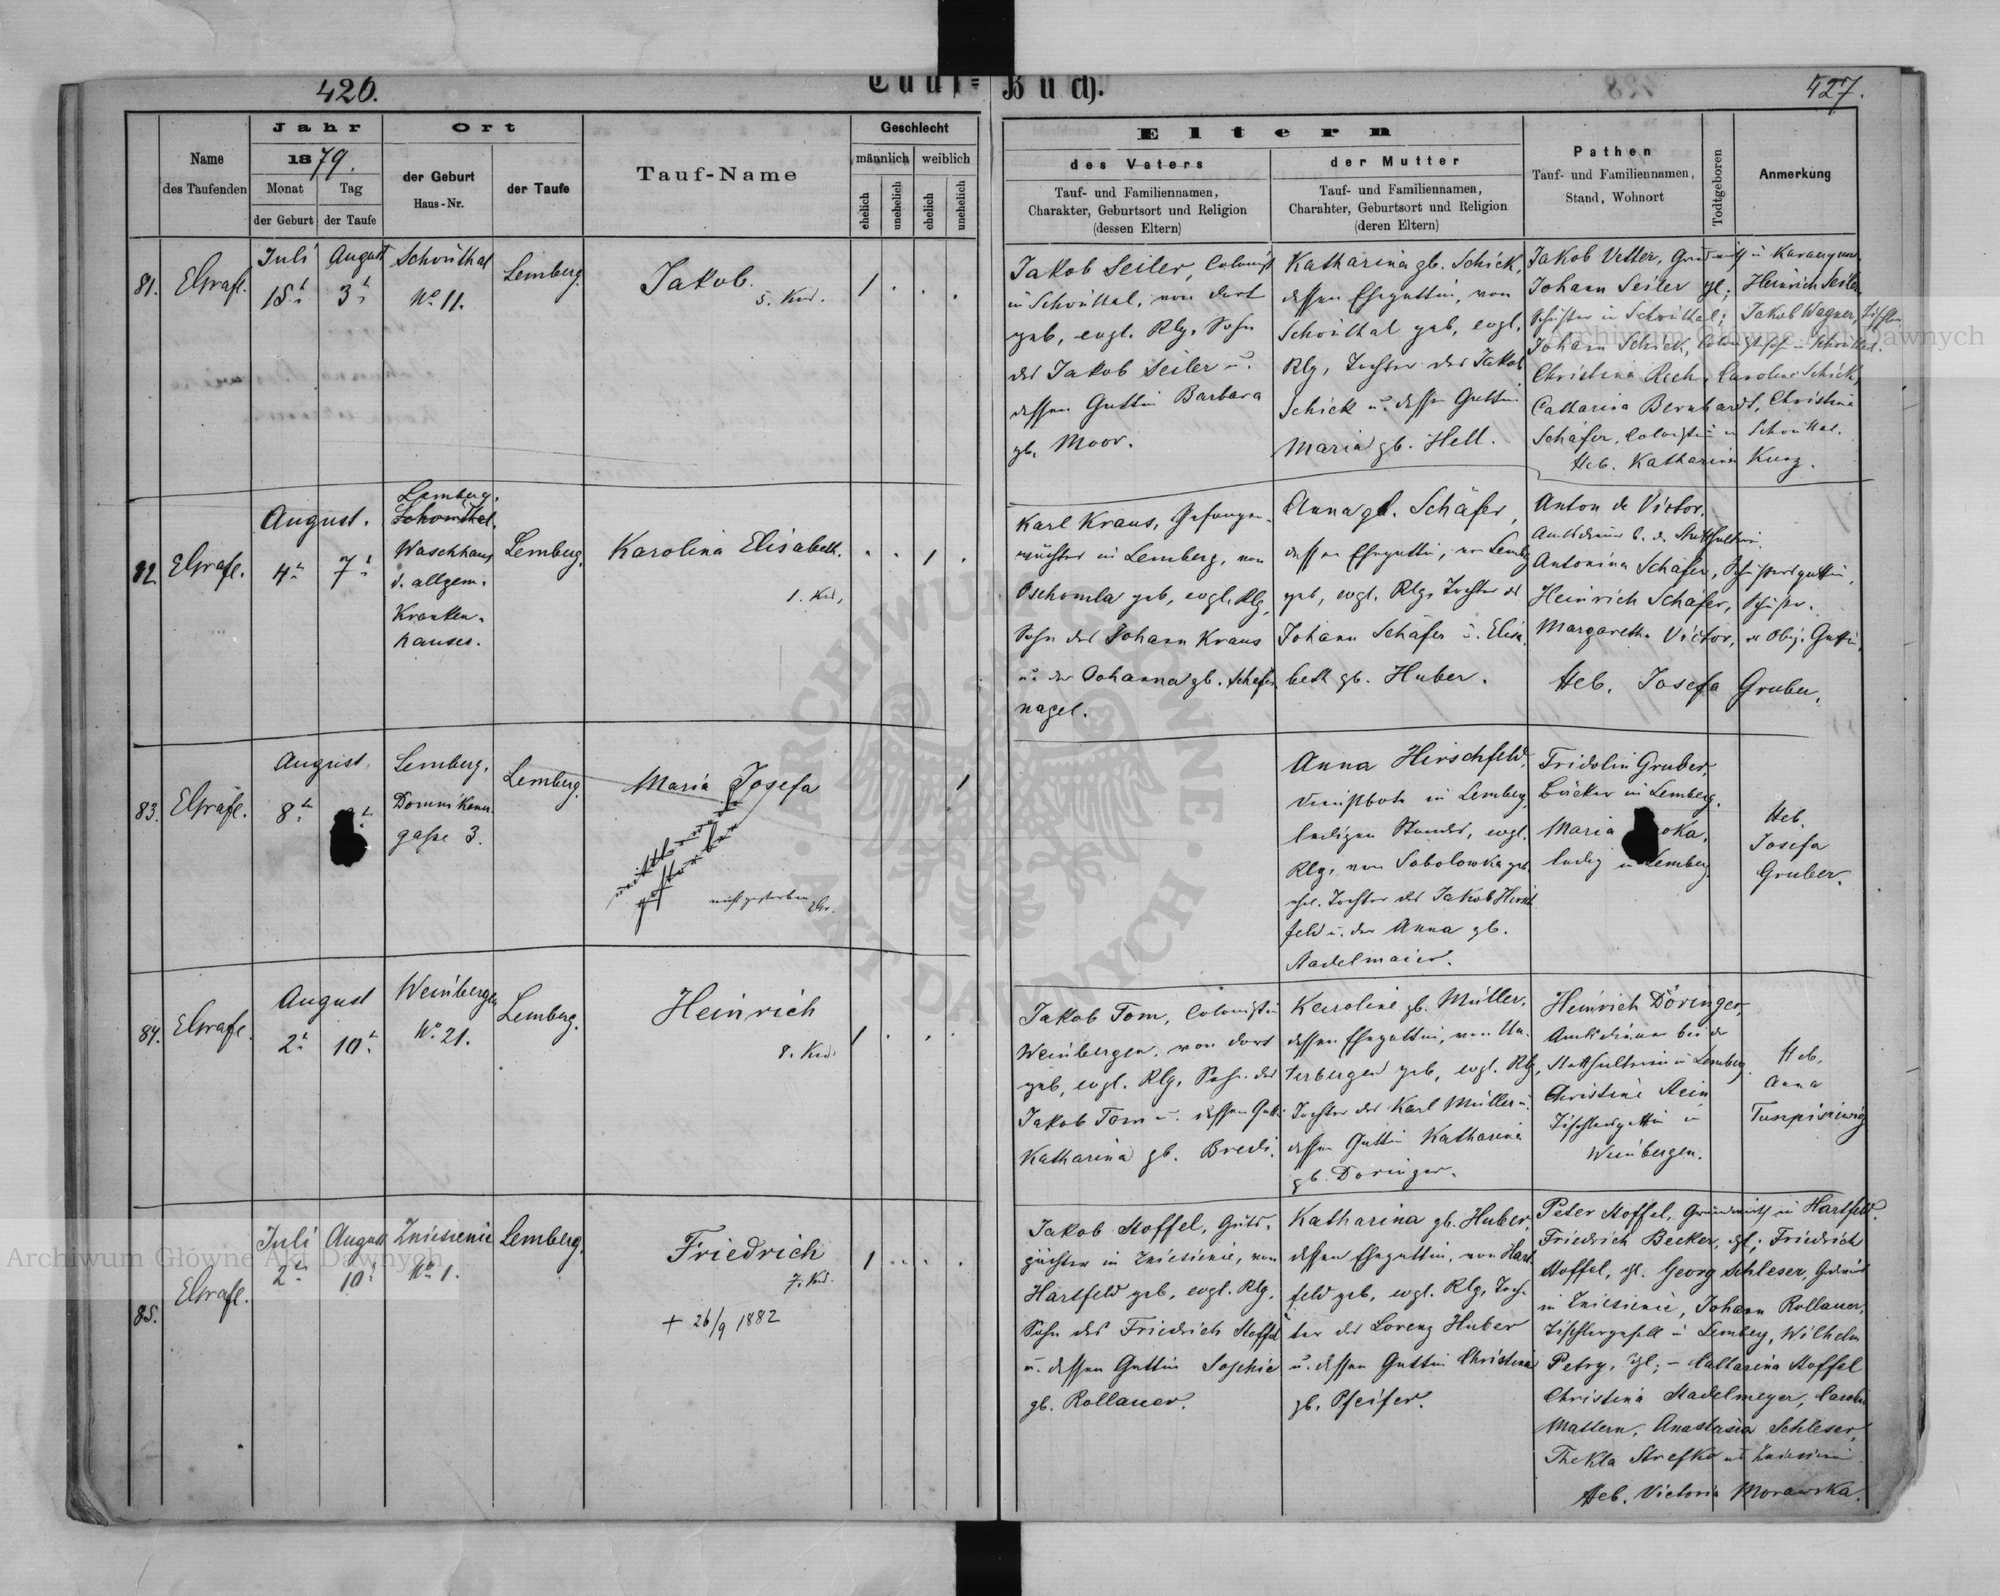 426.
Tauf=Buch.
427.
Name
des Taufenden
Jahr
1879.
Monat
der Geburt
Tag
der Taufe
Ort
der Geburt
Haus-Nr.
der Taufe
Tauf-Name
Geschlecht
männlich
weiblich
ehelich
unehelich
ehelich
unehelich
Eltern
des Vaters
Tauf- und Familiennamen,
Charakter, Geburtsort und Religion
(dessen Eltern)
der Mutter
Tauf- und Familiennamen,
Charahter, Geburtsort und Religion
(deren Eltern)
Pathen
Tauf- und Familiennamen,
Stand, Wohnort
Todtgeboren
Anmerkung
81.
ElGrafl.
Juli
18t
August
3t
Schönthal
No 11.
Lemberg.
Jakob.
5. Kd.
1 . . .
Jakob Seiler, Colonist
in Schönthal, von dort
geb, evgl. Rlg, Sohn
des Jakob Seiler u.
dessen Gattin Barbara
gb. Moor.
Katharina gb. Schick,
dessen Ehegattin, von
Schönthal geb, evgl.
Rlg, Tochter des Jakob
Schick u. dessen Gattin
Maria gb. Hell.
Jakob Vetter,
Johann Seiler gl; Heinrich Seiler,
in Schönthal; Jakob Wagner,
Johann Schick,
Christina Rech, Caroline Schick,
Catharina Bernhardt, Christina
Schäfer, in Schönthal.
Heb. Katharina Kurz.
82
ElGrafl.
August.
4t
7t
Lemberg.
Schönthal.
Waschhaus
d. allgem.
Kranken-
hauses.
Lemberg.
Karolina Elisabeth.
1. Kd,
. . 1 .
Karl Kraus, Gefangen-
wächter in Lemberg, von
geb, evgl. Rlg,
Sohn des Johann Kraus
u. der Johanna gb.
nagel.
Anna gb. Schäfer,
dessen Ehegattin, von Lemberg
geb, evgl. Rlg, Tochter des
Johann Schäfer u. Elisa-
beth gb. Huber.
Anton de Victor,
Amtsdiener b. d. Statthalterei.
Antonina Schäfer,
Heinrich Schäfer,
Margaretha Victor, Gattin,
Heb. Josefa Gruber,
83.
ElGrafl.
August.
8t
Lemberg.
Dominikaner
gasse 3.
Lemberg.
Maria Josefa
mittlerweile
gestorben
nicht gestorben
1
Anna Hirschfeld,
Dienstbote in Lemberg,
ledigen Standes, evgl.
Rlg, von Sobolowka geb,
ehel. Tochter des Jakob Hirsch-
feld u. der Anna gb.
Stadelmaier.
Fridolin Gruber,
Bäcker in Lemberg.
Maria
ledig in Lemberg
Heb.
Josefa
Gruber.
84.
ElGrafl.
August
2t
10t
Weinbergen
No 21.
Lemberg.
Heinrich
8. Kd.
1 . . .
Jakob Tom, Colonist in
Weinbergen, von dort
geb, evgl. Rlg, Sohn des
Jakob Tom u. dessen Gattin
Katharina gb. Bredi.
Karoline gb. Müller,
dessen Ehegattin, von Un-
terbergen geb, evgl. Rlg,
Tochter des Karl Müller u.
dessen Gattin Katharina
gb. Doringer.
Heinrich Döringer,
Amtsdiener bei der
Statthalterei in Lemberg.
Christine Stein
Tischlersgattin in
Weinbergen.
Heb.
Anna
85.
ElGrafl.
Juli
2t
August
10t
Zniesienie
No 1.
Lemberg.
Friedrich
7. Kd.
+ 26/9 1882
1 . . .
Jakob Stoffel, Guts-
pächter in Zniesienie, von
Hartfeld geb, evgl. Rlg,
Sohn des Friedrich Stoffel
u. dessen Gattin Sophie
gb. Rollauer.
Katharina gb. Huber,
dessen Ehegattin, von Hart-
feld geb, evgl. Rlg, Toch-
ter des Lorenz Huber
u. dessen Gattin Christina
gb. Pfeifer.
Peter Stoffel, Grundwirth in Hartfeld,
Friedrich Becker, gl; Friedrich
Stoffel, gl. Georg Schleser,
in Zniesienie, Johann Rollauer,
Tischlergesell in Lemberg, Wilhelm
Petry, gl; – Catharina Stoffel
Christina Stadelmeyer,
Mattern, Anastasia Schleser,
Thekla Strefko in Zniesienie
Heb. Victoria Morawska.
Archiwum Główne Akt Dawnych
Archiwum Główne Akt Dawnych
ARCHIWUM GŁÓWNE AKT DAWNYCH